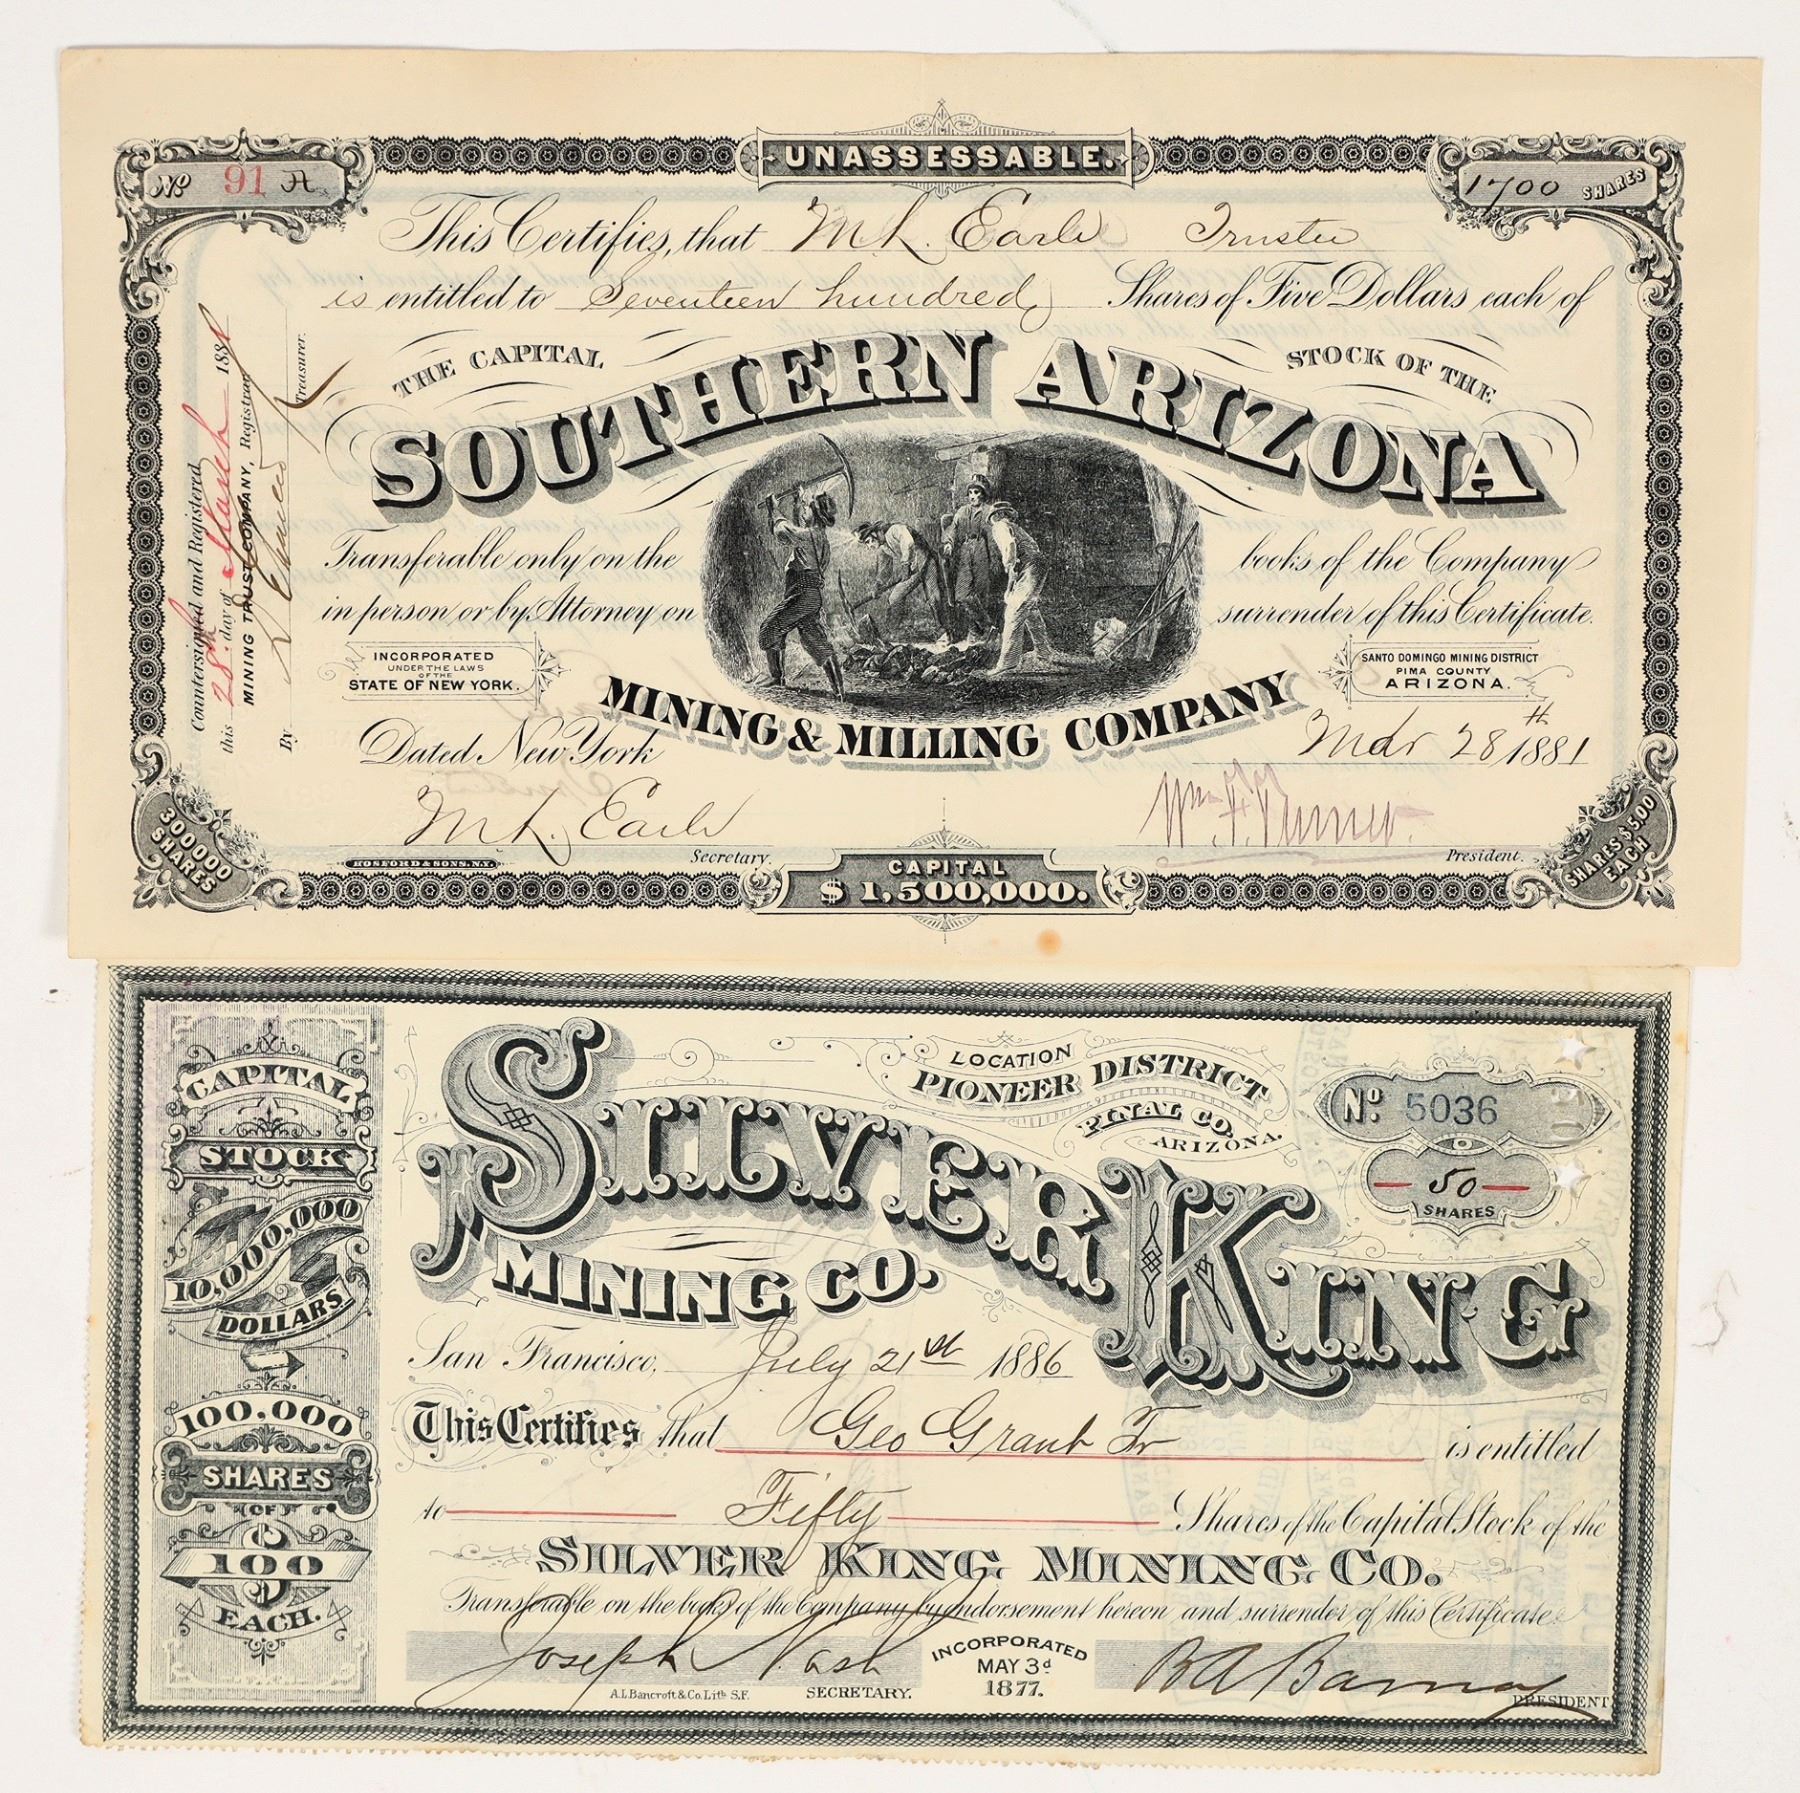 UNASSESSABLE.
No 91 A
1700 SHARES
This Certifies, that M L. Earle Trustee
is entitled to Seventeen hundred Shares of Five Dollars each of
THE CAPITAL STOCK OF THE
SOUTHERN ARIZONA
Transferable only on the books of the Company
in person or by Attorney on surrender of this Certificate.
INCORPORATED
UNDER THE LAWS
OF THE
STATE OF NEW YORK.
SANTO DOMINGO MINING DISTRICT
PIMA COUNTY
ARIZONA.
MINING & MILLING COMPANY
Dated New York Mar 28th 1881
M L. Earle
Secretary.
President.
HOSFORD & SONS. N.Y.
CAPITAL
$1,500,000.
300000
SHARES
SHARES $5.00
EACH
Countersigned and Registered
this 28th day of March 1881
MINING TRUST COMPANY, Registrar
By Treasurer.
CAPITAL
STOCK
10,000,000
DOLLARS.
100,000
SHARES
OF
$
100
EACH.
LOCATION
PIONEER DISTRICT
PINAL CO.
ARIZONA.
No. 5036
50
SHARES
SILVER KING
MINING CO.
San Francisco, July 21st 1886
This Certifies that Geo Grant Tr is entitled
to Fifty Shares of the Capital Stock of the
SILVER KING MINING CO.
Transferable on the books of the Company by endorsement hereon and surrender of this Certificate
Joseph Nash
SECRETARY.
A.L. Bancroft & Co. Lith. S.F.
INCORPORATED
MAY 3d
1877.
B A Barney
PRESIDENT